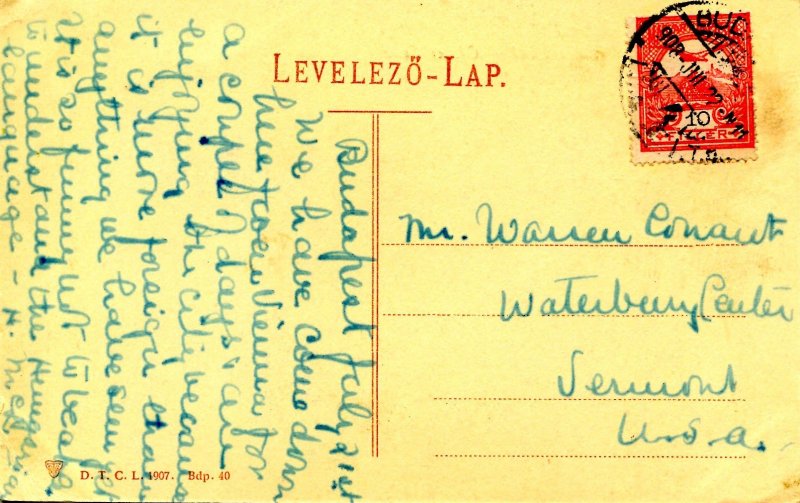 LEVELEZŐ-LAP.
BUD
908 JUL 22
10
FILLÉR
Budapest July 21st
We have come down
here from Vienna for
a couple of days & are
enjoying the city because
it is more foreign than
anything we have seen yet
It is so funny not to be able
to understand the Hungarian
language -
Mr. Warren Conant
Waterbury Center
Vermont
U.S.A.
D. T. C. L. 1907. Bdp. 40